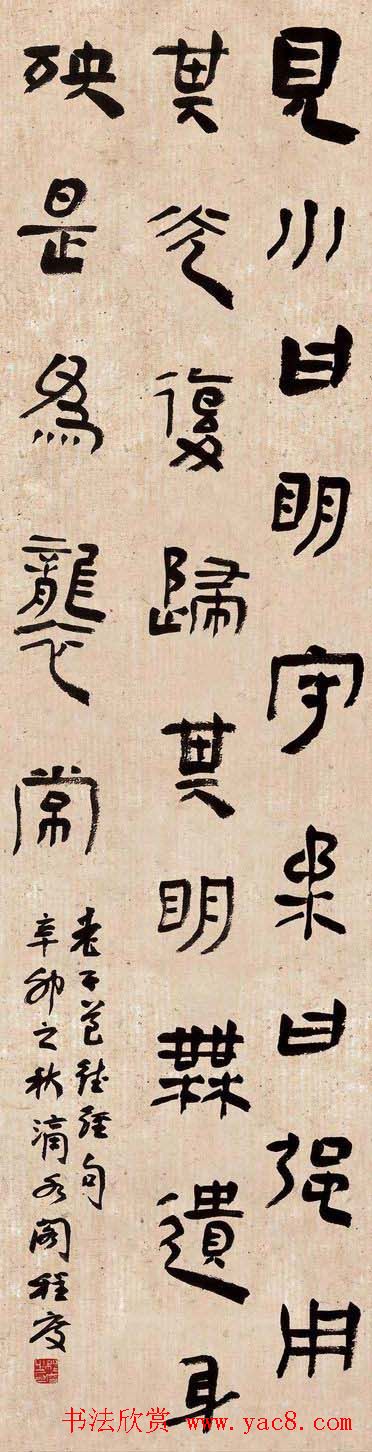 見小曰明守柔曰強用
其光復歸其明無遺身
殃是為襲常
老子道德經句
辛卯之秋滴水閣程度
书法欣赏 www.yac8.com